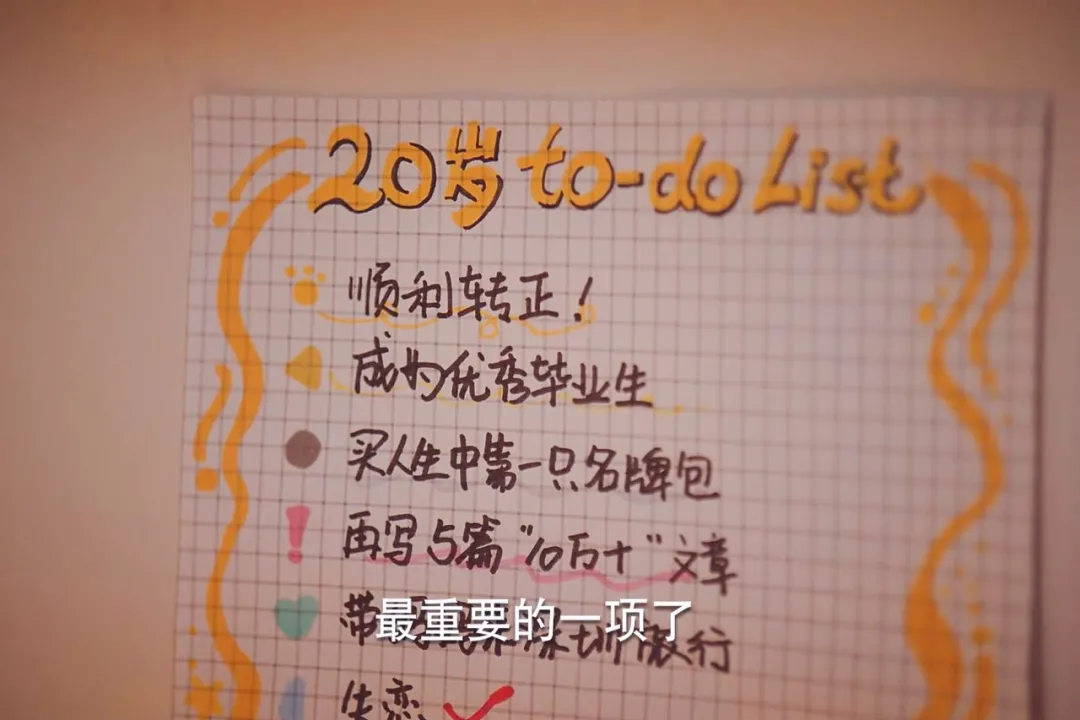 20岁 to-do List
顺利转正！
成为优秀毕业生
买人生中第一只名牌包
再写5篇“10万+”文章
带 深圳旅行
最重要的一项了
失恋